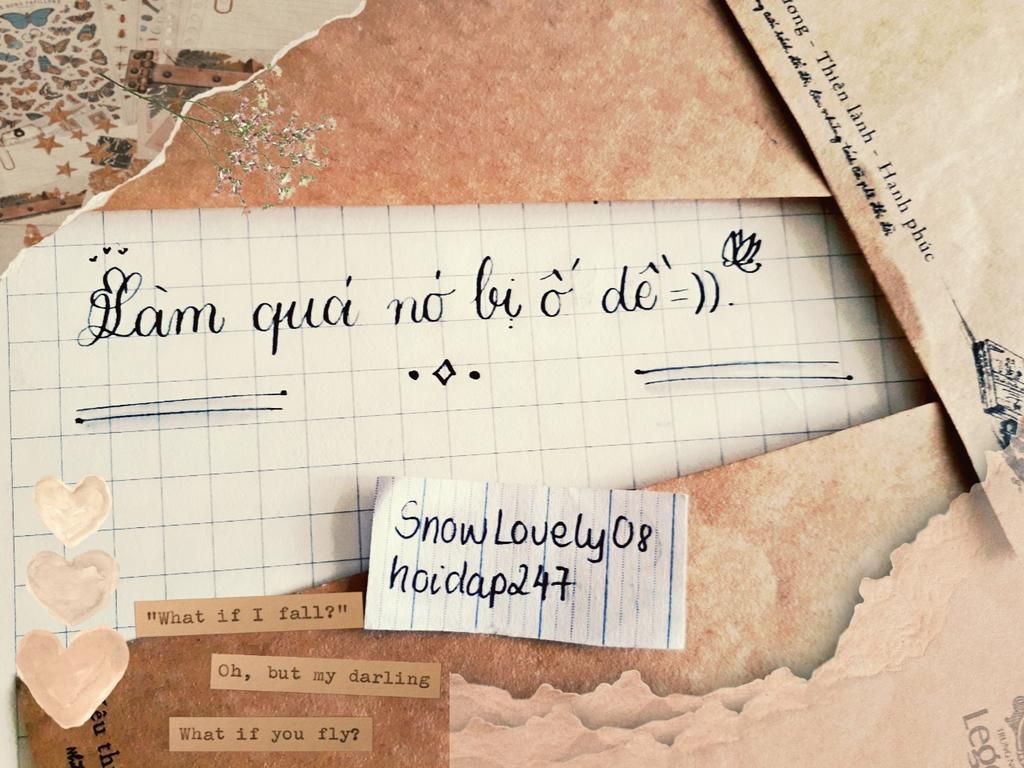 ương - Thiện lành - Hạnh phúc
Làm quá nó bị ố dề =)).
SnowLovely08
hoidap247
"What if I fall?"
Oh, but my darling
What if you fly?
Lege